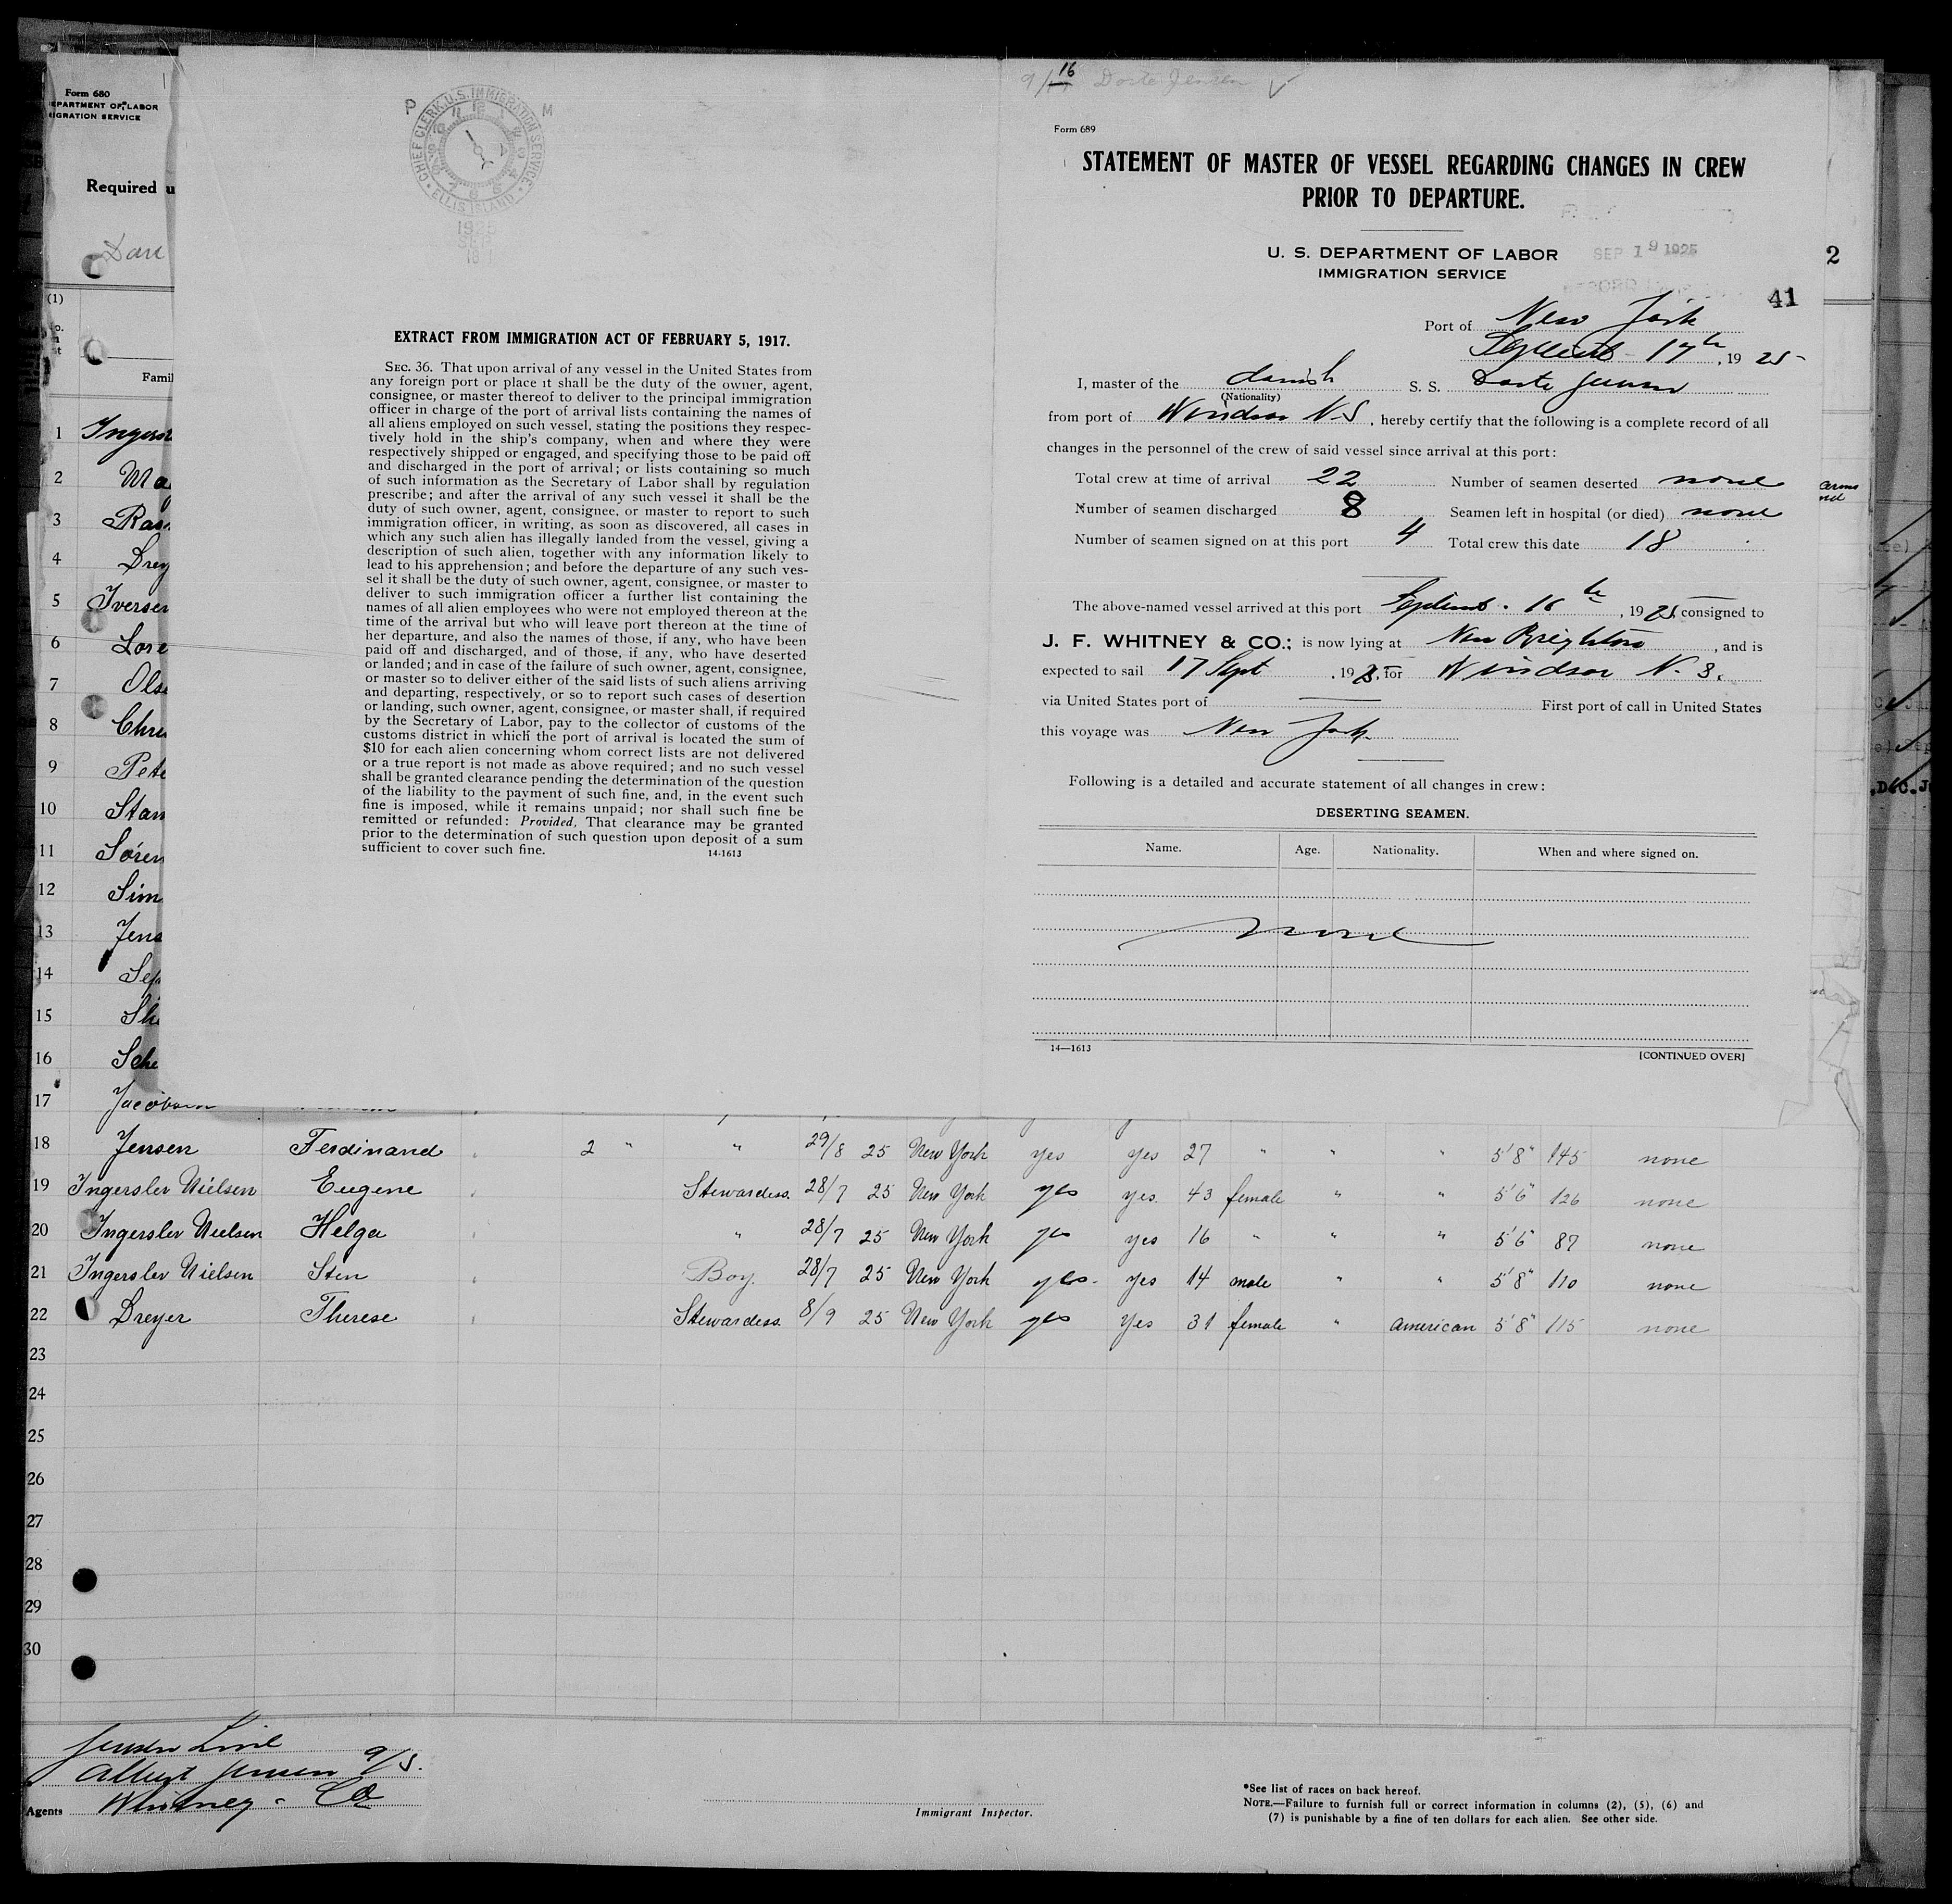 Form 680
DEPARTMENT OF LABOR
IMIGRATION SERVICE
Required u
Dan
(1)
Famil
1 Ingers
2 Ma
3 Ras
4 Drey
5 Iversen
6 Lore
7 Ols
8 Chri
9 Pete
10 Stan
11 Sören
12 Sim
13 Jens
14 Sep
15 Sh
16 Sche
17 Jacobsen
P M
CHIEF CLERK, U.S. IMMIGRATION SERVICE
ELLIS ISLAND
1925
SEP
EXTRACT FROM IMMIGRATION ACT OF FEBRUARY 5, 1917.
SEC. 36. That upon arrival of any vessel in the United States from
any foreign port or place it shall be the duty of the owner, agent,
consignee, or master thereof to deliver to the principal immigration
officer in charge of the port of arrival lists containing the names of
all aliens employed on such vessel, stating the positions they respec-
tively hold in the ship's company, when and where they were
respectively shipped or engaged, and specifying those to be paid off
and discharged in the port of arrival; or lists containing so much
of such information as the Secretary of Labor shall by regulation
prescribe; and after the arrival of any such vessel it shall be the
duty of such owner, agent, consignee, or master to report to such
immigration officer, in writing, as soon as discovered, all cases in
which any such alien has illegally landed from the vessel, giving a
description of such alien, together with any information likely to
lead to his apprehension; and before the departure of any such ves-
sel it shall be the duty of such owner, agent, consignee, or master to
deliver to such immigration officer a further list containing the
names of all alien employees who were not employed thereon at the
time of the arrival but who will leave port thereon at the time of
her departure, and also the names of those, if any, who have been
paid off and discharged, and of those, if any, who have deserted
or landed; and in case of the failure of such owner, agent, consignee,
or master so to deliver either of the said lists of such aliens arriving
and departing, respectively, or so to report such cases of desertion
or landing, such owner, agent, consignee, or master shall, if required
by the Secretary of Labor, pay to the collector of customs of the
customs district in which the port of arrival is located the sum of
$10 for each alien concerning whom correct lists are not delivered
or a true report is not made as above required; and no such vessel
shall be granted clearance pending the determination of the question
of the liability to the payment of such fine, and, in the event such
fine is imposed, while it remains unpaid; nor shall such fine be
remitted or refunded: Provided, That clearance may be granted
prior to the determination of such question upon deposit of a sum
sufficient to cover such fine.
14-1613
9/16 Dorte Jensen
Form 689
STATEMENT OF MASTER OF VESSEL REGARDING CHANGES IN CREW
PRIOR TO DEPARTURE.
U. S. DEPARTMENT OF LABOR
IMMIGRATION SERVICE
SEP 19 1925
2
41
Port of New York
Septemb 17th, 1925
I, master of the danish S. S. Dorte Jensen
(Nationality)
from port of Windsor N.S, hereby certify that the following is a complete record of all
changes in the personnel of the crew of said vessel since arrival at this port:
Total crew at time of arrival 22 Number of seamen deserted none
Number of seamen discharged 8 Seamen left in hospital (or died) none
Number of seamen signed on at this port 4 Total crew this date 18
The above-named vessel arrived at this port Septemb. 16th, 1925, consigned to
J. F. WHITNEY & CO.; is now lying at New Brighton, and is
expected to sail 17 Sept, 1925, for Windsor N. S.
via United States port of First port of call in United States
this voyage was New York
Following is a detailed and accurate statement of all changes in crew:
DESERTING SEAMEN.
Name. Age. Nationality. When and where signed on.
none
14—1613
[CONTINUED OVER]
18 Jensen Ferdinand " 2 " " 29/8 25 New York yes yes 27 " " " 5'8" 145 none
19 Ingerslev Nielsen Eugene " Stewardess 28/7 25 New York yes yes. 43 female " " 5'6" 126 none
20 Ingerslev Nielsen Helga " " 28/7 25 New York yes yes 16 " " " 5'6" 87 none
21 Ingerslev Nielsen Sten " Boy. 28/7 25 New York yes- yes 14 male " " 5'8" 110 none
22 Dreyer Therese " Stewardess 8/9 25 New York yes yes 31 female " american 5'8" 115 none
23
24
25
26
27
28
29
30
Jensen Line
Albert Jensen
Agents Whitney - Co
Immigrant Inspector.
*See list of races on back hereof.
NOTE.—Failure to furnish full or correct information in columns (2), (5), (6) and
(7) is punishable by a fine of ten dollars for each alien. See other side.